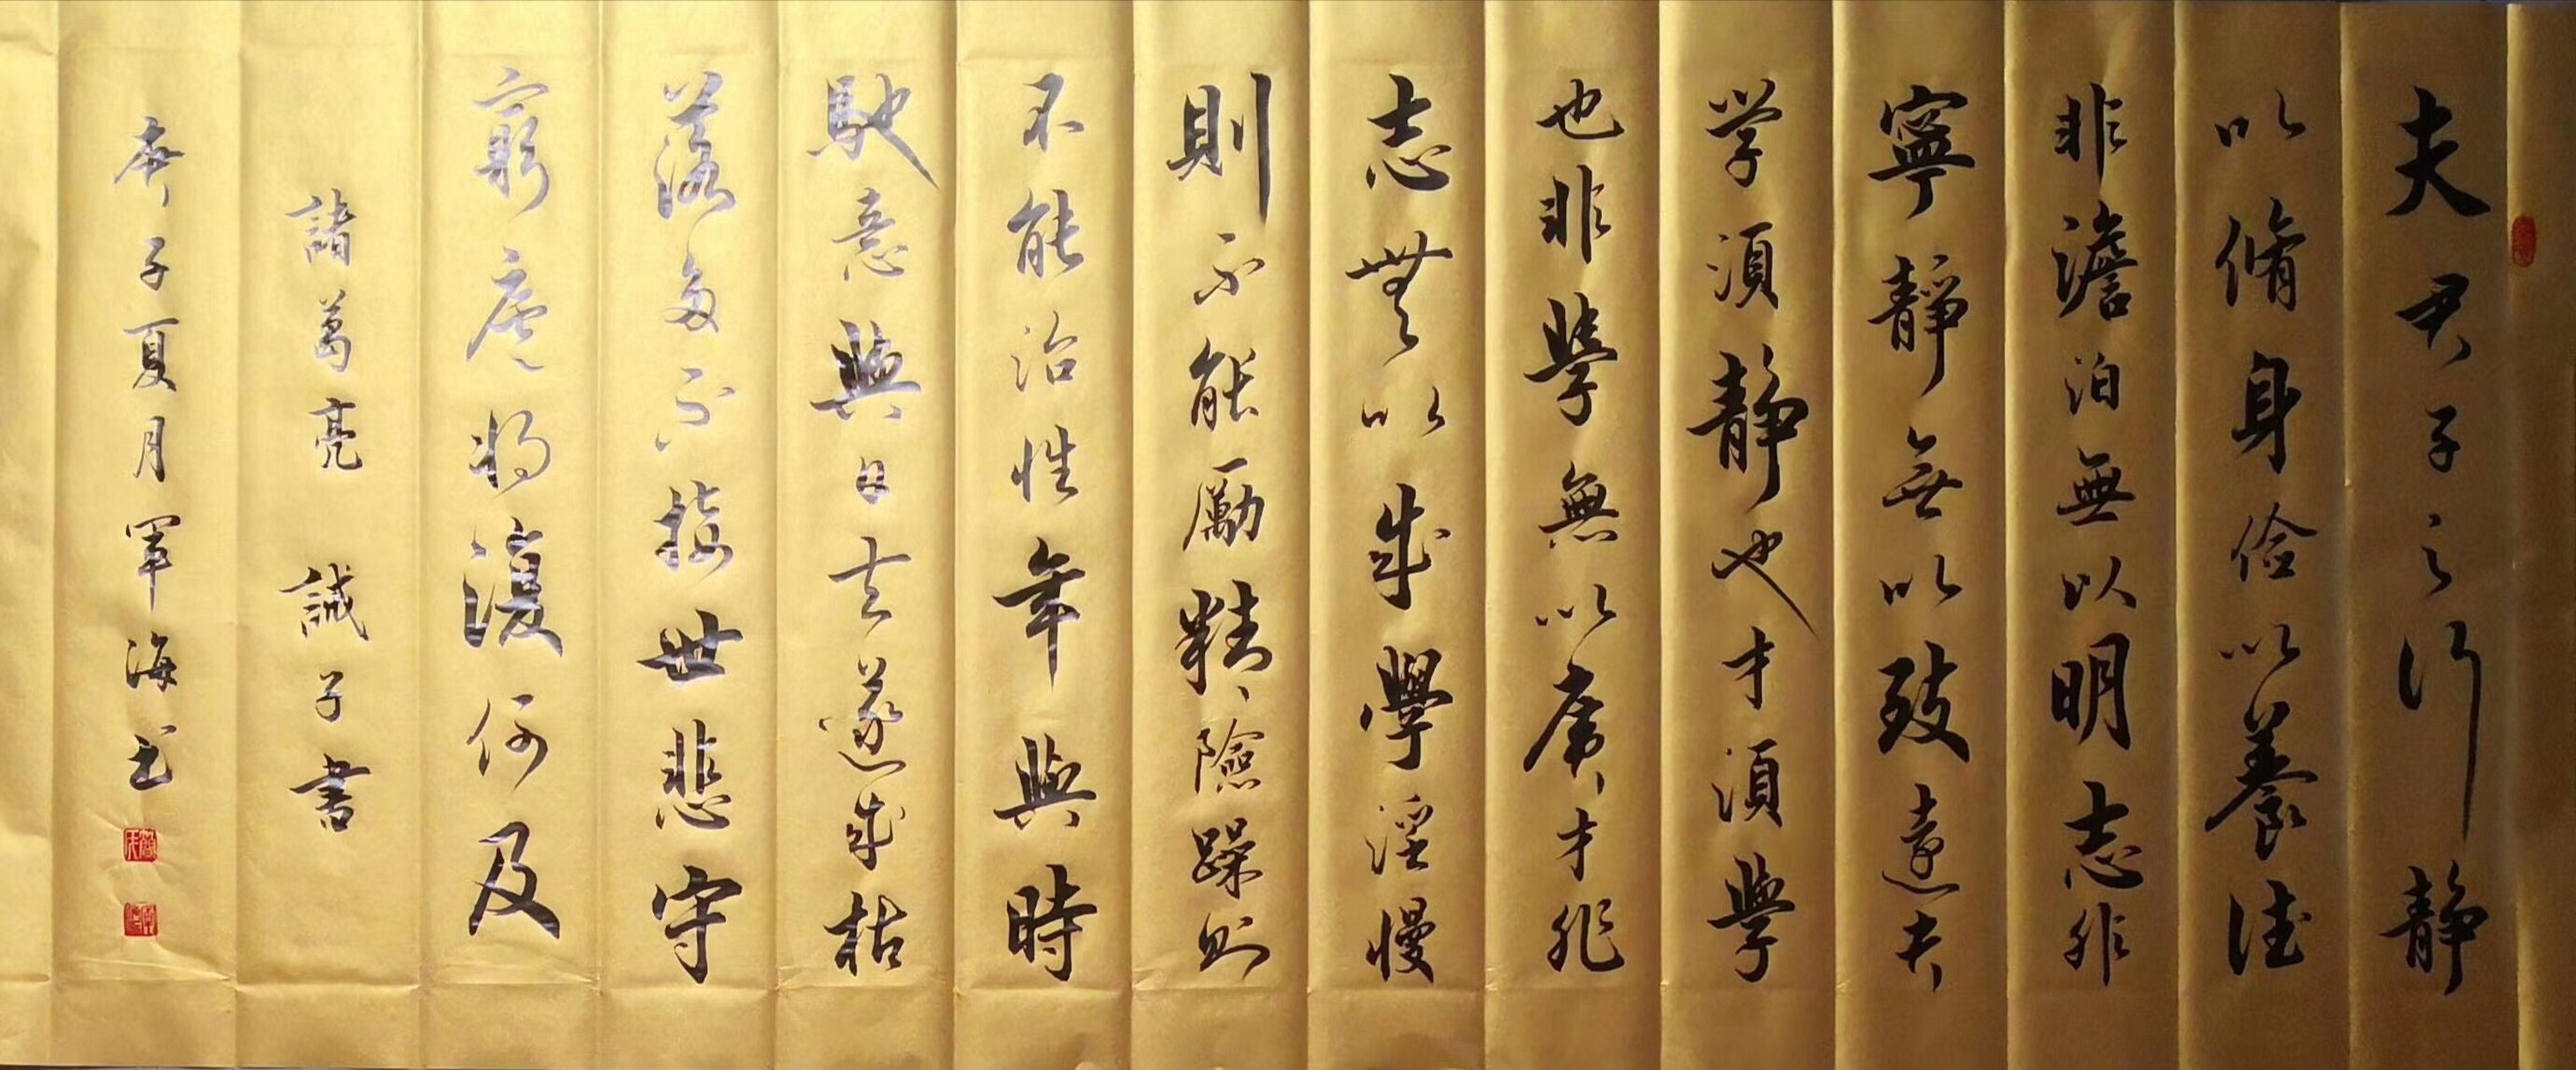 夫君子之行静
以脩身儉以養德
非澹泊無以明志非
寧靜靜無以致遠夫
学須静也才須學
也非學無以廣才非
志無以成學淫慢
則不能勵精險躁則
不能治性年與時
馳意與日去遂成枯
落多不接世悲守
窮廬将復何及
諸葛亮 誡子書
庚子夏月軍海书